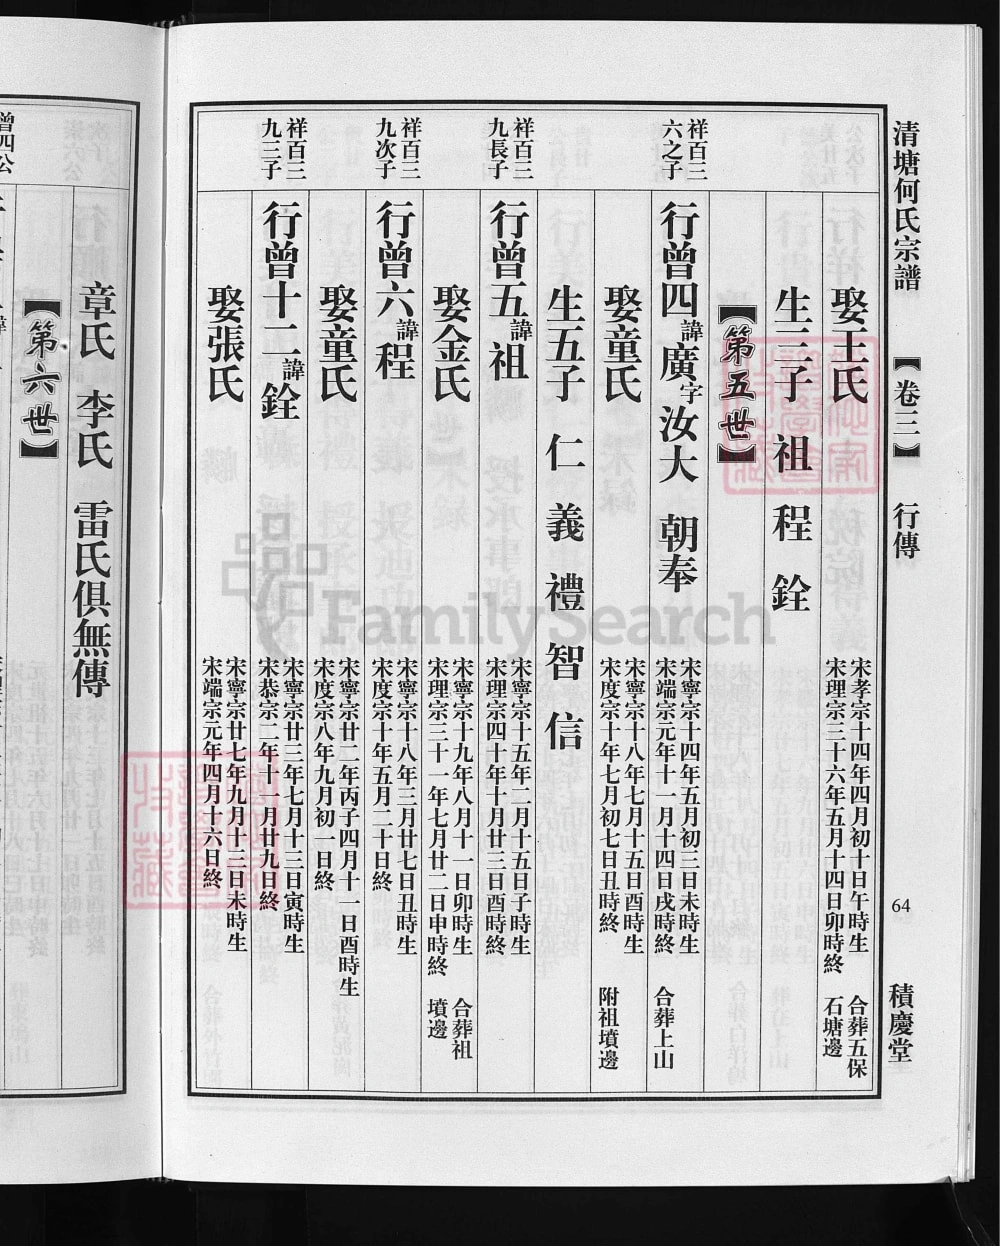 清塘何氏宗譜 【卷三】 行傳 64 積慶堂
娶王氏 宋孝宗十四年四月初十日午時生 合葬五保
宋理宗三十六年五月十四日卯時終 石塘邊
生三子 祖 程 銓
【第五世】
祥百三
六之子
行曾四諱廣字汝大 朝奉 宋寧宗十四年五月初三日未時生
宋端宗元年十一月十四日戌時終 合葬上山
娶童氏 宋寧宗十八年七月十五日酉時生
宋度宗十年七月初七日丑時終 附祖墳邊
生五子 仁 義 禮 智 信
祥百三
九長子
行曾五諱祖 宋寧宗十五年二月十五日子時生
宋理宗四十年十月廿三日酉時終
娶金氏 宋寧宗十九年八月十一日卯時生 合葬祖
宋理宗三十一年七月廿二日申時終 墳邊
祥百三
九次子
行曾六諱程 宋寧宗十八年三月廿七日丑時生
宋度宗十年五月二十日終
娶童氏 宋寧宗廿二年丙子四月十一日酉時生
宋度宗八年九月初一日終
祥百三
九三子
行曾十二諱銓 宋寧宗廿三年七月十三日寅時生
宋恭宗二年十一月廿九日終
娶張氏 宋寧宗廿七年九月十三日未時生
宋端宗元年四月十六日終
章氏 李氏 雷氏俱無傳
【第六世】
曾四公
FamilySearch